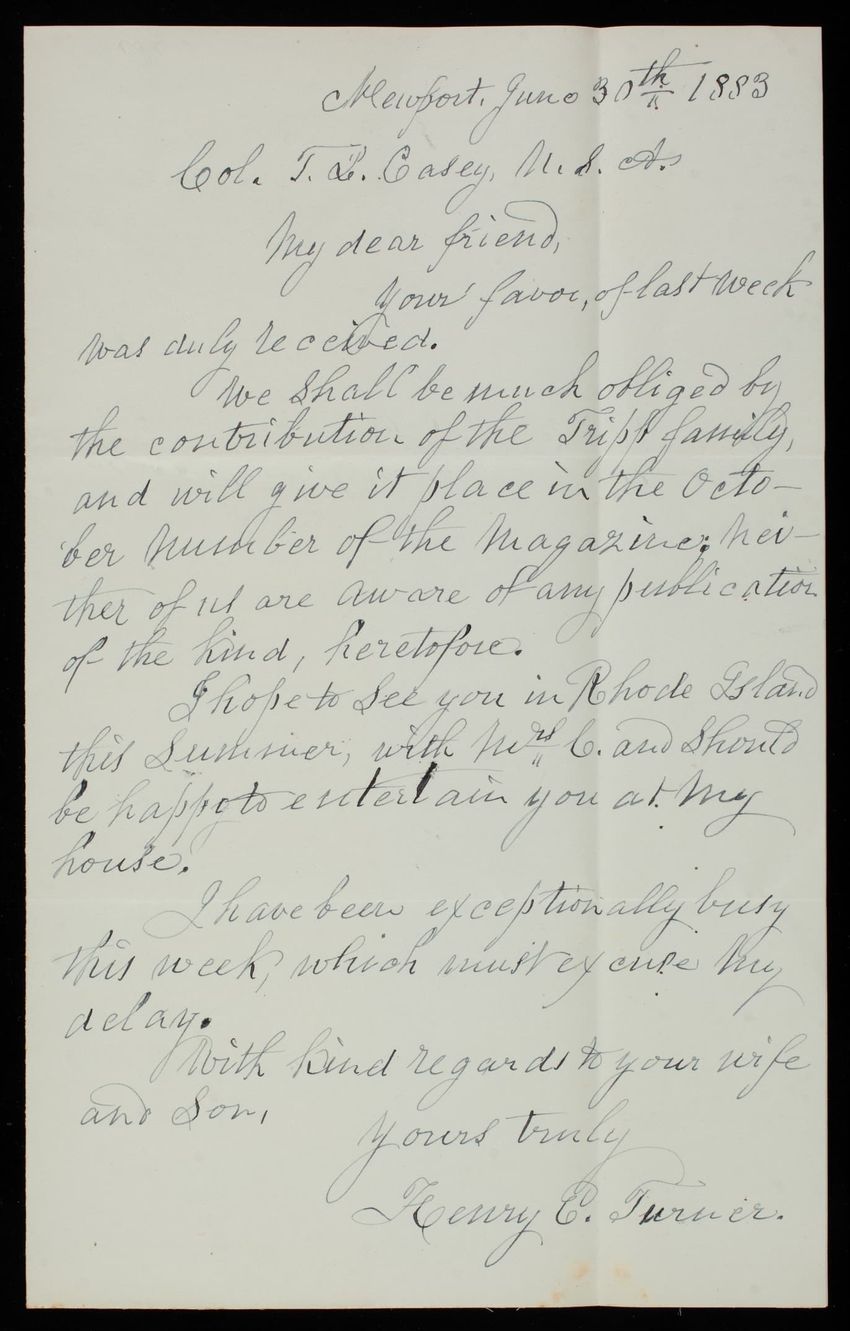 Newport, June 30th 1883
Col. T. L. Casey, U. S. A.
My dear friend,
Your favor, of last week
was duly received.
We shall be much obliged by
the contribution of the Tripp family,
and will give it place in the Octo-
ber Number of the Magazine; Nei-
ther of us are aware of any publication
of the kind, heretofore.
I hope to see you in Rhode Island
this Summer, with Mrs C. and should
be happy to entertain you at my
house.
I have been exceptionally busy
this week, which must excuse my
delay.
With kind regards to your wife
and Son,
Yours truly
Henry E. Turner.